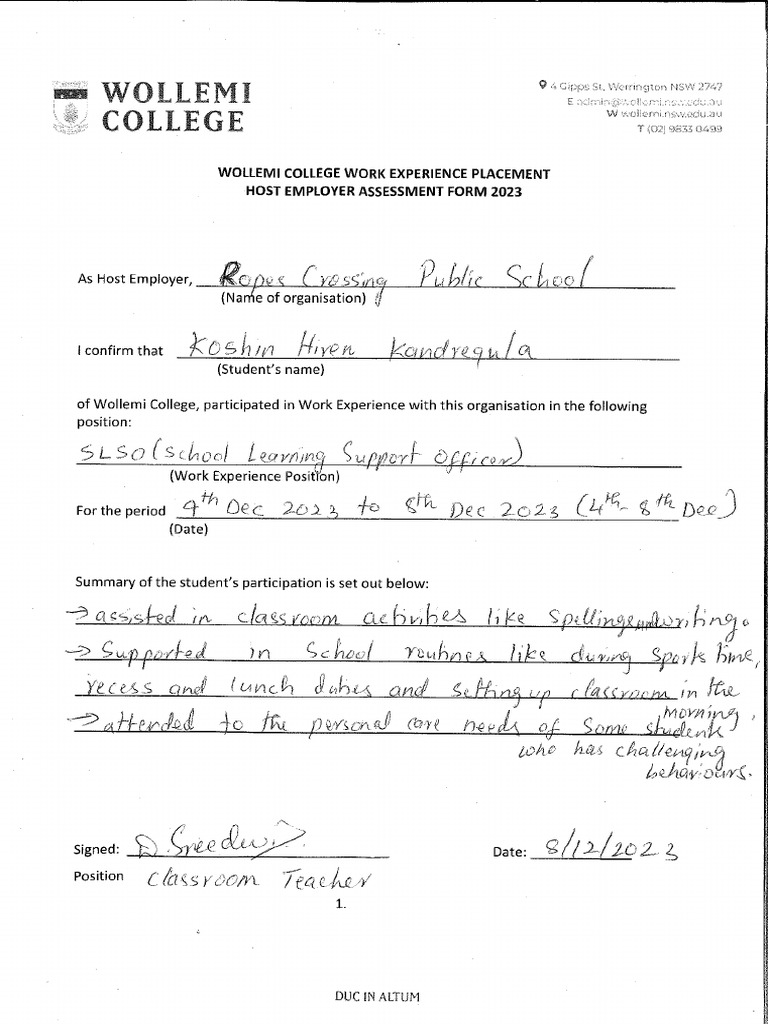 WOLLEMI
COLLEGE
4 Gipps St, Werrington NSW 2747
E admin@wollemi.nsw.edu.au
W wollemi.nsw.edu.au
T (02) 9833 0499
WOLLEMI COLLEGE WORK EXPERIENCE PLACEMENT
HOST EMPLOYER ASSESSMENT FORM 2023
As Host Employer, Ropes Crossing Public School
(Name of organisation)
I confirm that Koshin Hiren Kandregula
(Student's name)
of Wollemi College, participated in Work Experience with this organisation in the following
position:
SLSO (School Learning Support Officer)
(Work Experience Position)
For the period 4th Dec 2023 to 8th Dec 2023 (4th - 8th Dec)
(Date)
Summary of the student's participation is set out below:
→ assisted in classroom activities like spelling and writing.
→ Supported in School routines like during Sports time,
recess and lunch duties and setting up classroom in the
morning.
→ attended to the personal care needs of Some students
who has challenging
behaviours.
Signed: Date: 8/12/2023
Position Classroom Teacher
1.
DUC IN ALTUM